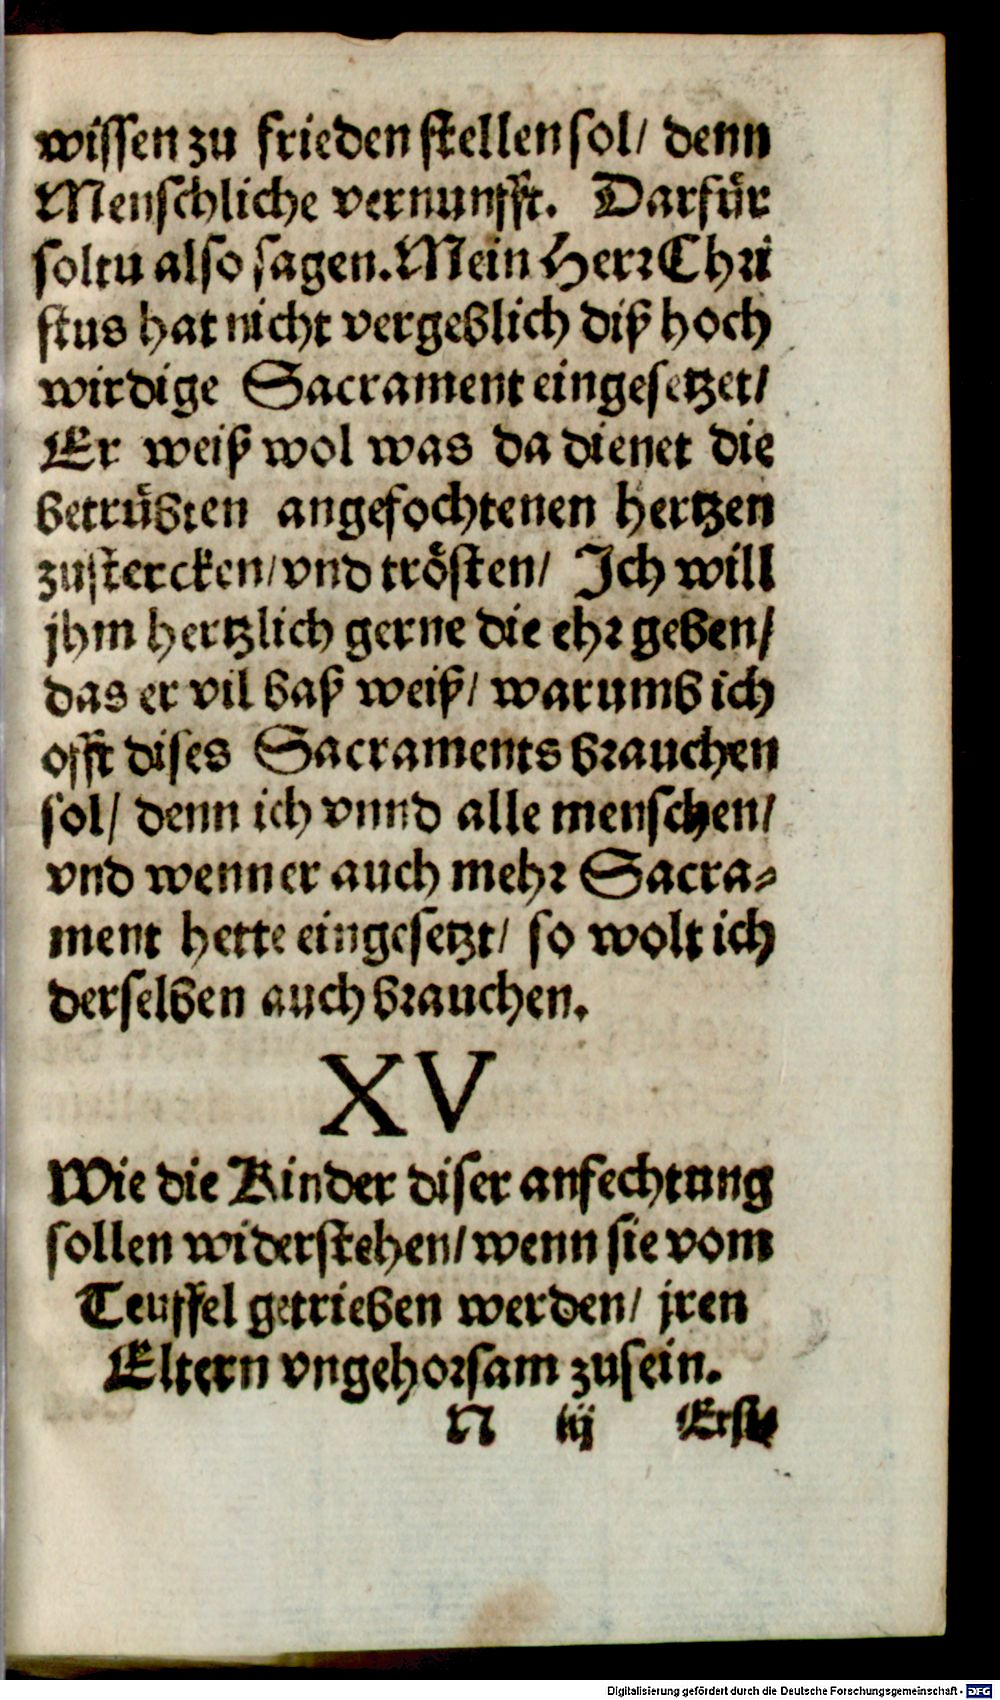 wissen zu frieden stellen sol/ denn
Menschliche vernunfft. Darfür
soltu also sagen. Mein Herr Chri
stus hat nicht vergeblich diß hoch
wirdige Sacrament eingesetzet/
Er weiß wol was da dienet die
betrübten angefochtenen hertzen
zustercken/ vnd trösten/ Ich will
jhm hertzlich gerne die ehr geben/
das er vil baß weiß/ warumb ich
offt dises Sacraments brauchen
sol/ denn ich vnnd alle menschen/
vnd wenn er auch mehr Sacra-
ment hette eingesetzt/ so wolt ich
derselben auch brauchen.
XV
Wie die Kinder diser anfechtung
sollen widerstehen/ wenn sie vom
Teuffel getrieben werden/ jren
Eltern vngehorsam zusein.
N iij
Digitalisierung gefördert durch die Deutsche Forschungsgemeinschaft - DFG